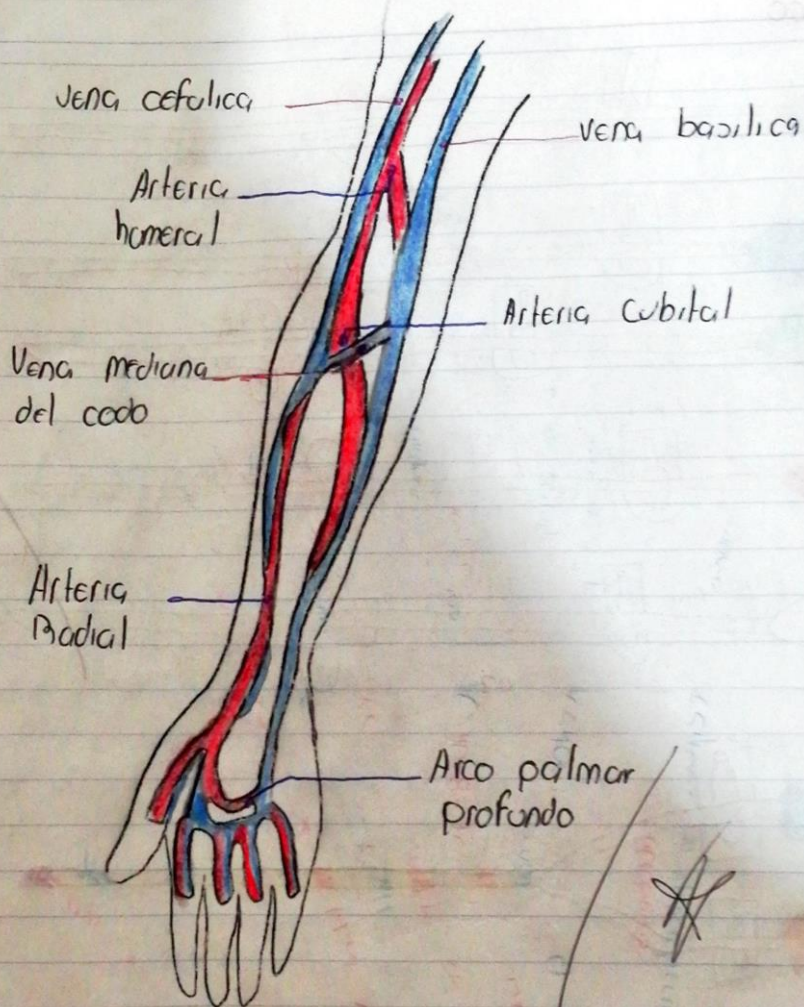 vena cefalica
vena basilica
Arteria
humeral
Arteria Cubital
Vena mediana
del codo
Arteria
Radial
Arco palmar
profundo